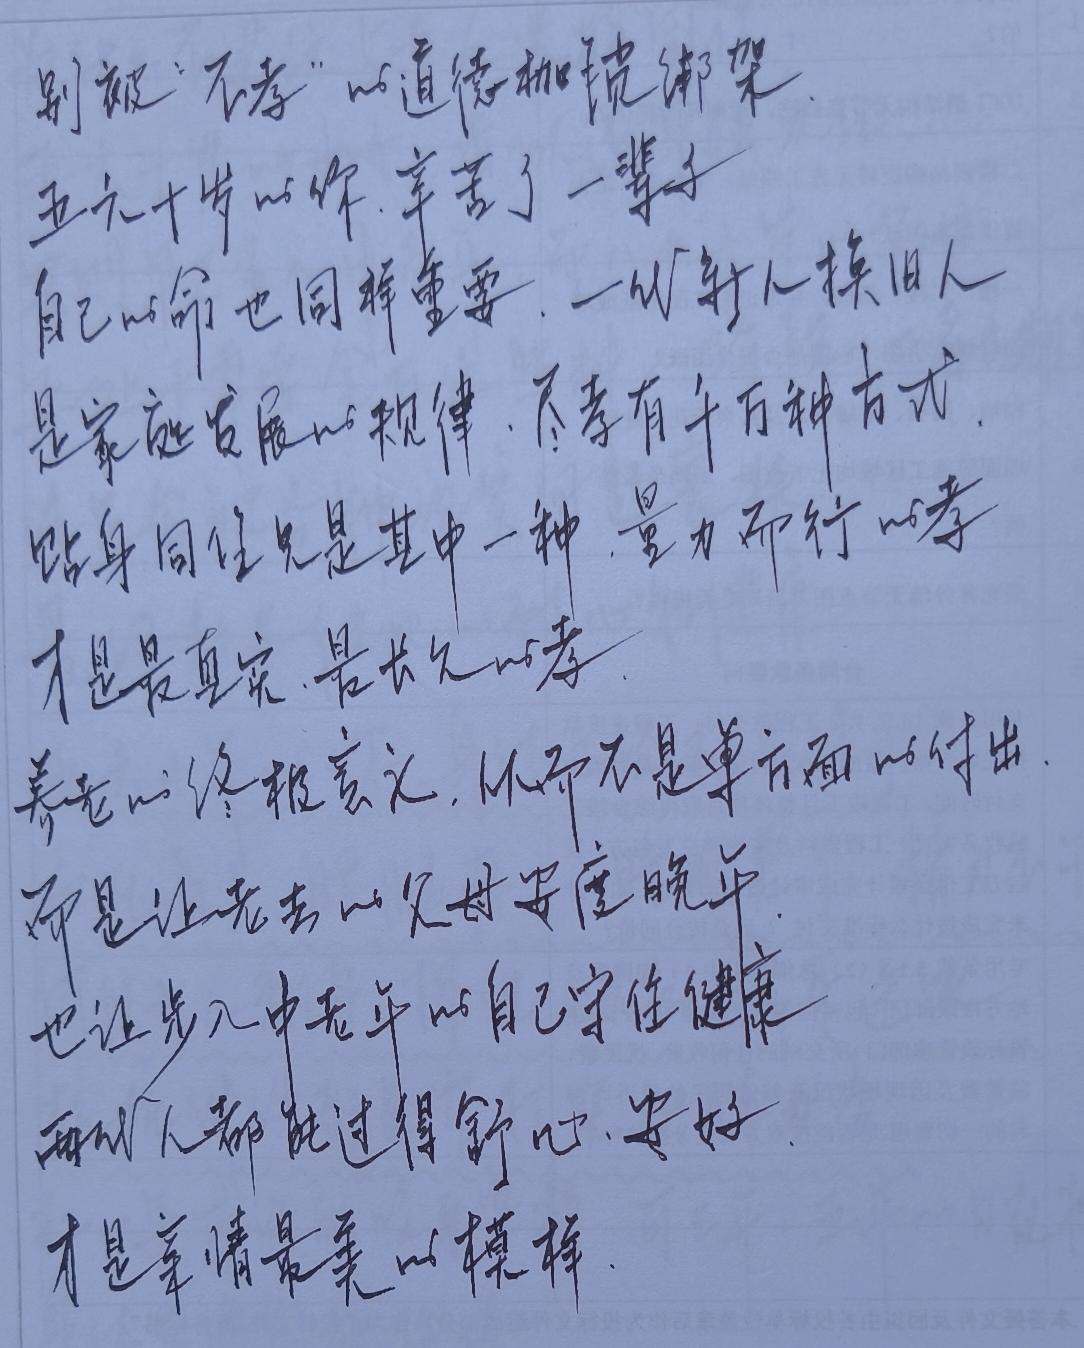 别被“不孝”的道德枷锁绑架.
五六十岁的你.辛苦了一辈子
自己的命也同样重要.一代新人换旧人
是家庭发展的规律.尽孝有千万种方式.
贴身同住只是其中一种.量力而行的孝
才是最真实.最长久的孝.
养老的终极意义.从而不是单方面的付出.
而是让老去的父母安度晚年.
也让步入中老年的自己守住健康
两代人都能过得舒心.安好.
才是亲情最美的模样.